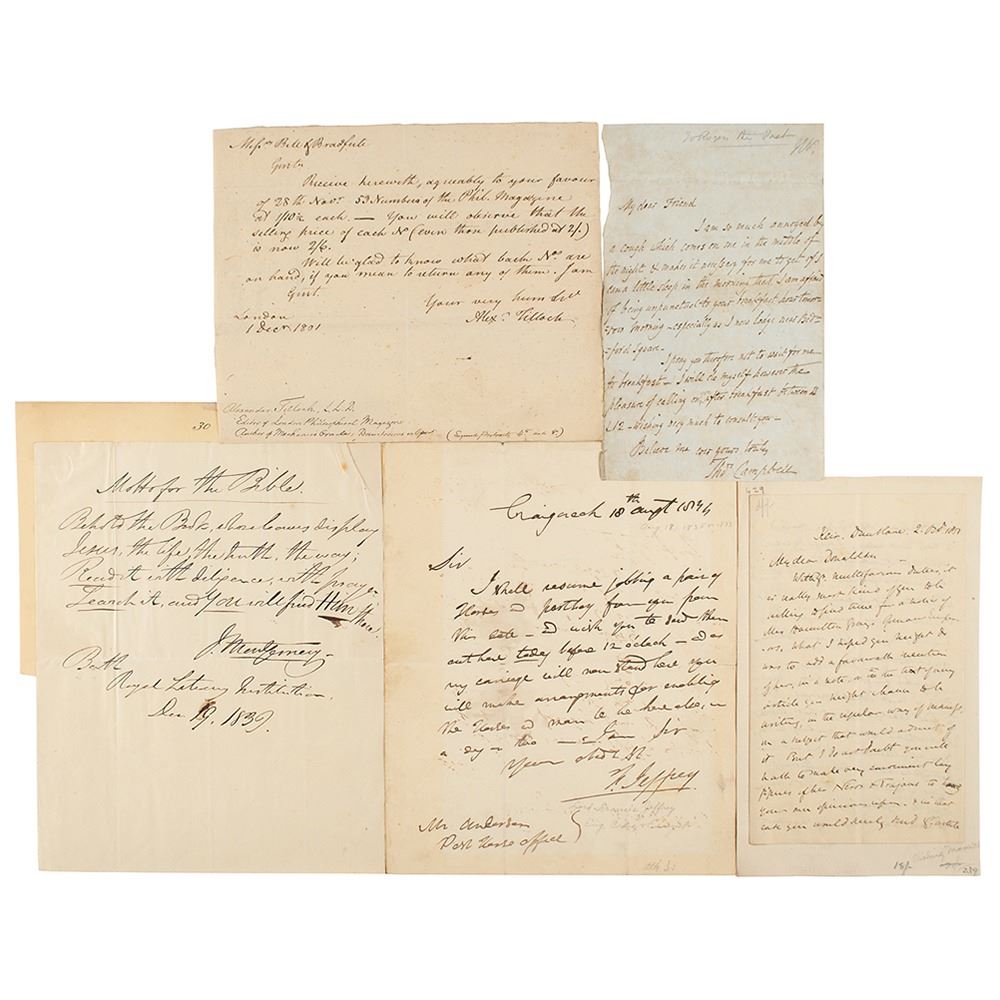 Messrs Bell & Bradfute
Gentn
Receive herewith, agreably to your favour
of 28th Novr 53 Numbers of the Phil. Magazine
at 1/10½ each. — You will observe that the
selling price of each No (even those published at 2/)
is now 2/6.
Will be glad to know what back Nos. are
on hand, if you mean to return any of them. I am
Gent.
Your very hum Svt
Alexr Tilloch
London
1 Decr 1801
Alexander Tilloch, L.L.D.
Editor of London Philosophical Magazine
Author of Mechanics Oracle,
To Rogers the Poet
My dear Friend
I am so much annoyed by
a cough which comes on me in the middle of
the night & makes it necessary for me to get if I
can a little sleep in the morning that I am afraid
of being unpunctual to your breakfast hour tomor-
row morning – especially as I now lodge near Bed-
-ford Square.
I pray you therefore not to wait for me
to breakfast – I will do myself however the
pleasure of calling on, after breakfast between 11
& 12 – wishing very much to consult you –
Believe me ever yours truly
Thos Campbell
30
Motto for the Bible.
Behold the Book, whose leaves display
Jesus, the life, the truth, the way;
Read it with diligence, with prayer
Search it, and You will find Him there.
J. Montgomery.
Bath
Royal Literary Institution.
Dec 19. 1839.
Craigcrook 18th augt 1834
Sir
I shall resume jobbing a pair of
Horses & postboy from you from
this date – & wish you to send them
out here today before 12 o'clock – & as
my carriage will now stand here you
will make arrangements for enabling
the Horses & man to be here also, in
a day or two –
Sir
F. Jeffrey
Mr Anderson
Post Horse office
629
My dear Donaldson
With yr multifarious duties, it
is really most kind of you to be
willing to find time for a notice of
Mrs Hamilton Gray's
What I hoped you might do
was to add a favourable mention
of her, in a note, or in the text of any
article you might chance to be
writing, in the regular way of
on a subject that would admit of
it. But I do not doubt you will
have to make very
of her Nero & Trajans to
your own opinions upon.
18/-
239